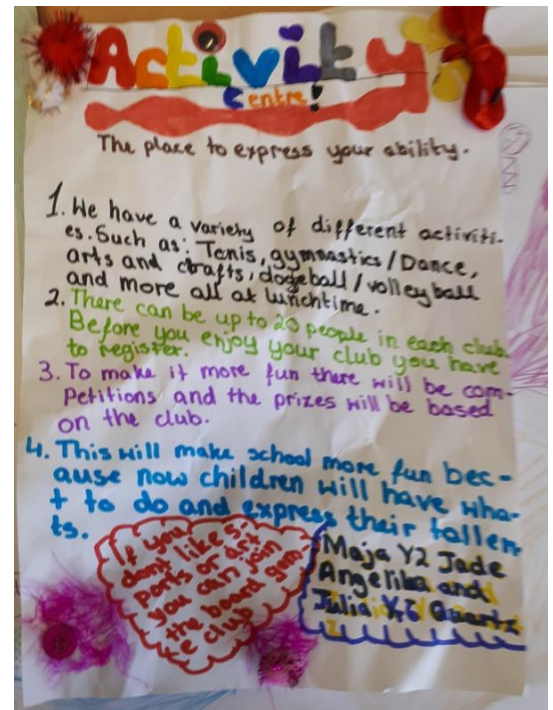 Activity
Centre!
The place to express your ability.
1. We have a variety of different activiti-
es. Such as: Tenis, gymnastics/Dance,
arts and crafts, dogeball/volleyball
and more all at lunchtime.
2. There can be up to 20 people in each club.
Before you enjoy your club you have
to register.
3. To make it more fun there will be com-
petitions and the prizes will be based
on the club.
4. This will make school more fun bec-
ause now children will have wha-
t to do and express their tallen-
ts.
If you
dont like s-
ports or art
you can join
the board gam-
e club
Maja Y2 Jade
Angelika and
Julia Y6 Quartz